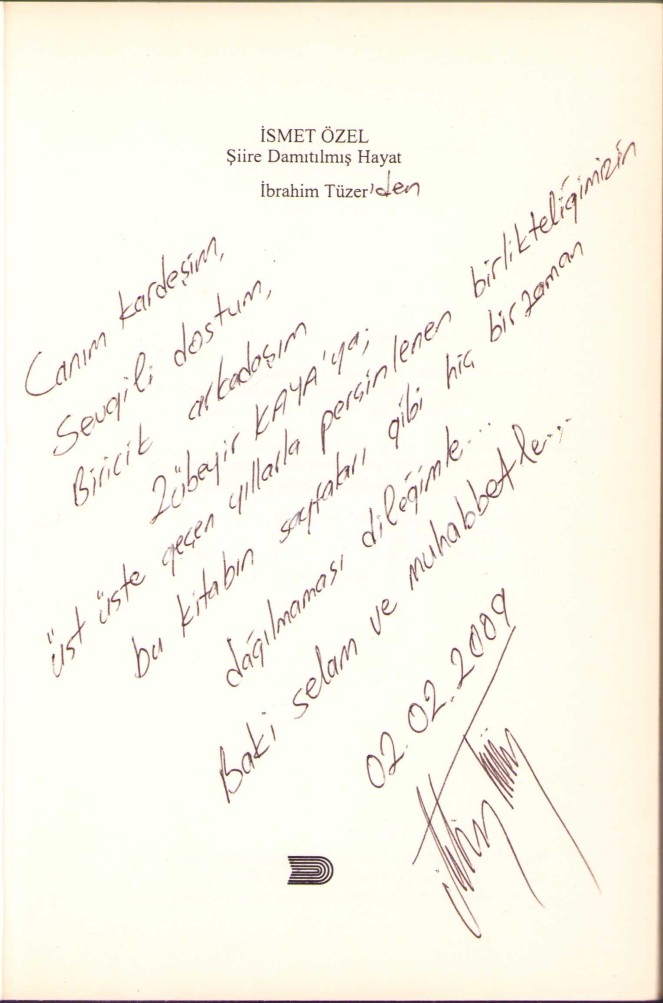 İSMET ÖZEL
Şiire Damıtılmış Hayat
İbrahim Tüzer'den
Canım kardeşim,
Sevgili dostum,
Biricik arkadaşım
Zübeyir KAYA'ya;
üst üste geçen yıllarla perçinlenen birlikteliğimizin
bu kitabın sayfaları gibi hiç bir zaman
dağılmaması dileğimle...
Baki selam ve muhabbetle...
02.02.2009